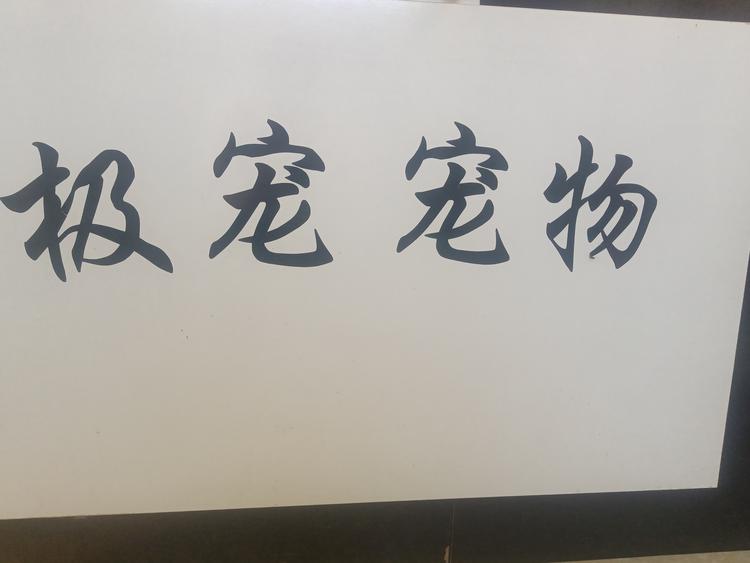 极宠宠物